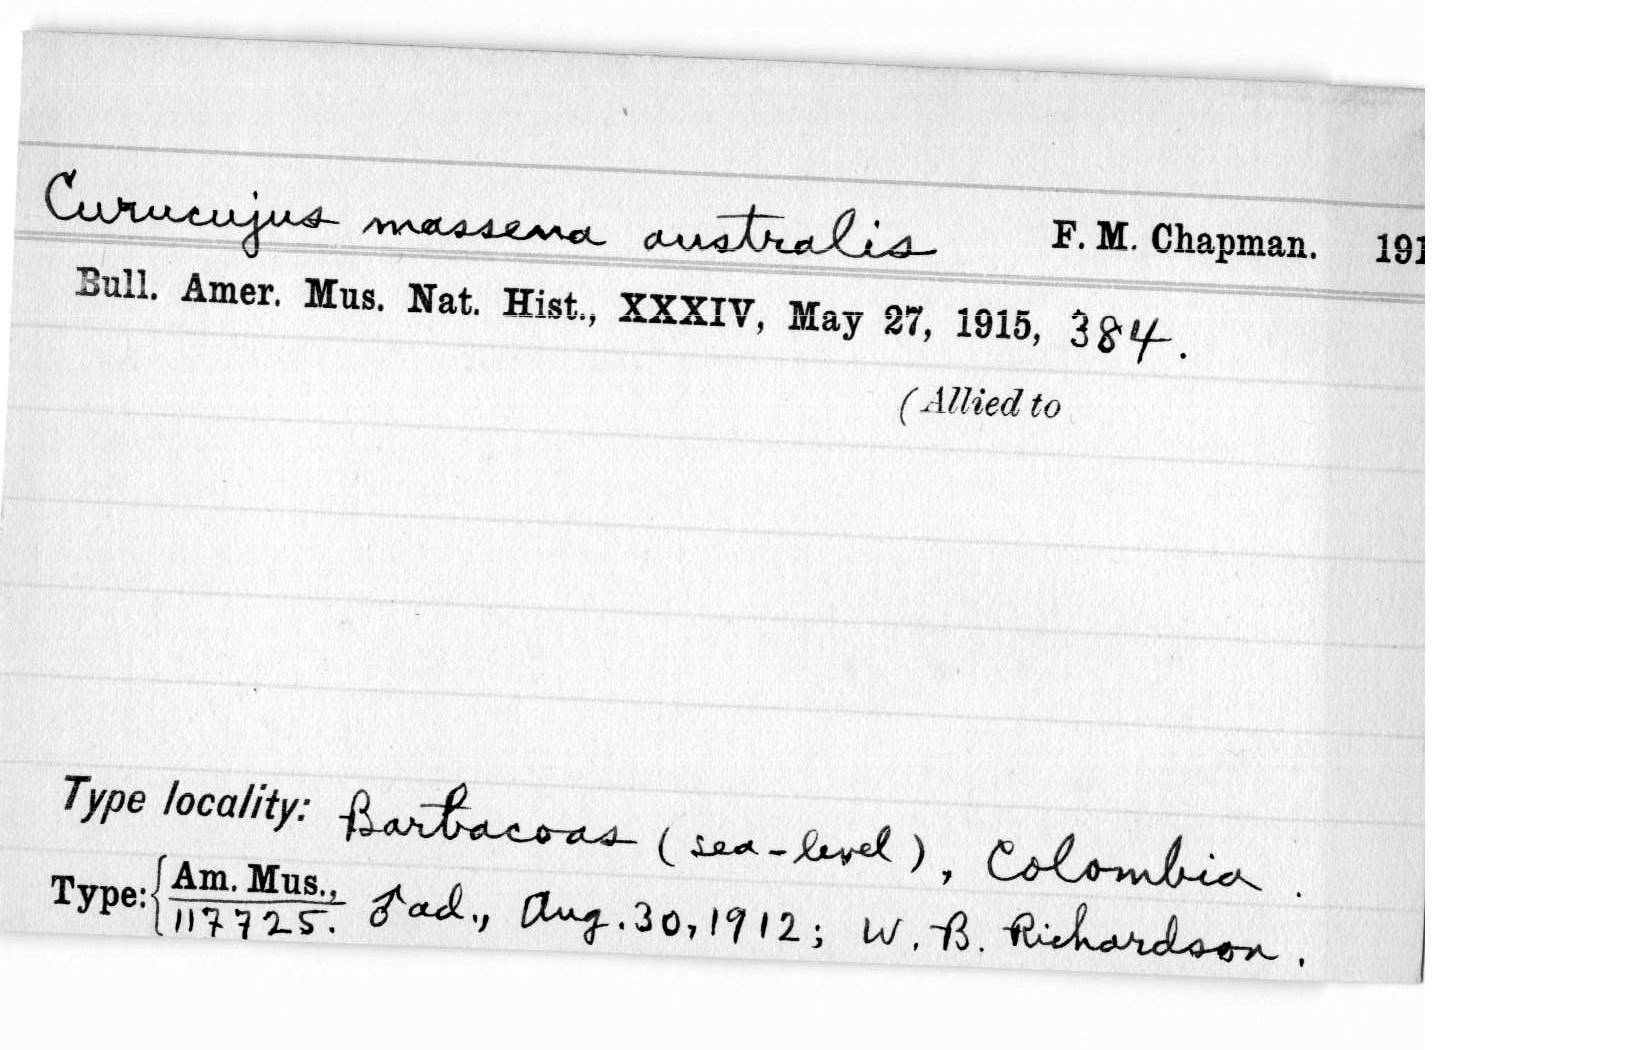 Curucujus massena australis F. M. Chapman. 191
Bull. Amer. Mus. Nat. Hist., XXXIV, May 27, 1915, 384.
(Allied to
Type locality: Barbacoas (sea-level), Colombia.
Type: { Am. Mus., 117725. ♂ ad., Aug. 30, 1912; W. B. Richardson.